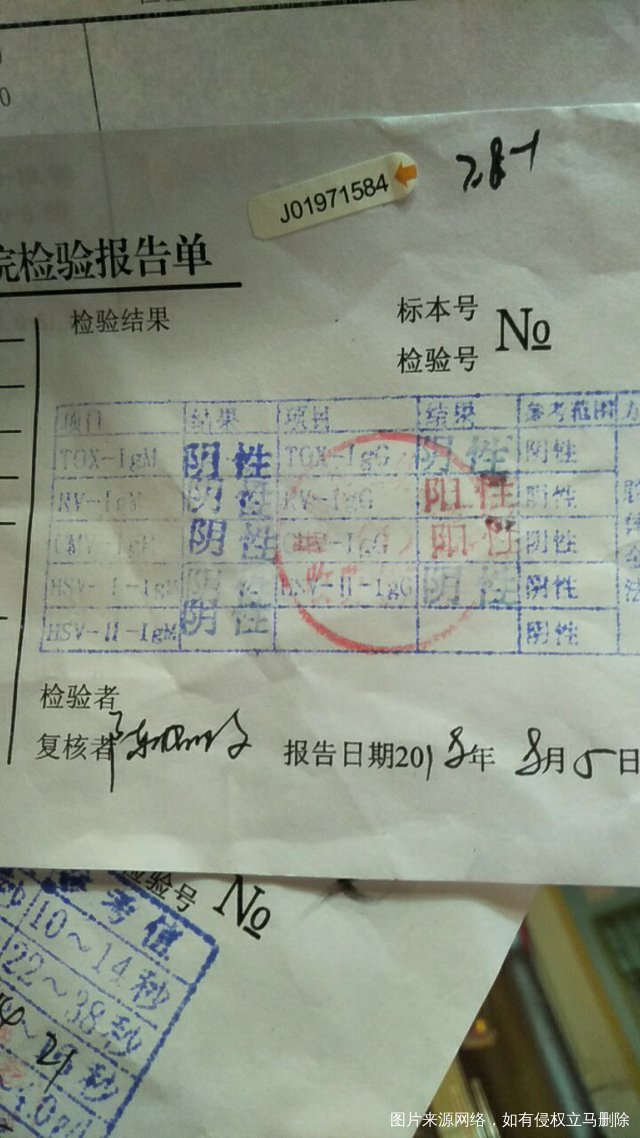 0
J01971584
院检验报告单
检验结果
标本号
检验号
№
项目 结果 项目 结果 参考范围 方
TOX-IgM 阴性 TOX-IgG 阴性 阴性
RV-IgM 阴性 RV-IgG 阳性 阴性
CMV-IgM 阴性 CMV-IgG 阳性 阴性
HSV-I-IgM 阴性 HSV-II-IgG 阴性 阴性
HSV-II-IgM 阴性 阴性
检验者
复核者
报告日期201 年 8月5日
检验号 №
参考值
秒 10~14秒
22~38秒
21秒
图片来源网络，如有侵权立马删除